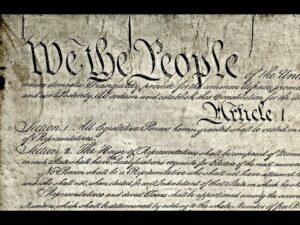 We the People of the Unit
insure domestic Tranquility, provide for the common defence, promote
and our Posterity, do ordain and establish this Constitution for the Unit
Article I
Section 1. All legislative Powers herein granted shall be vested in
Section 2. The House of Representatives shall be composed of Mem
in each State shall have Qualifications requisite for Electors of the most
No Person shall be a Representative who shall not have attained
and who shall not, when elected, be an Inhabitant of that State in which he
Representatives and direct Taxes shall be apportioned among the sever
Numbers, which shall be determined by adding to the whole Number of free